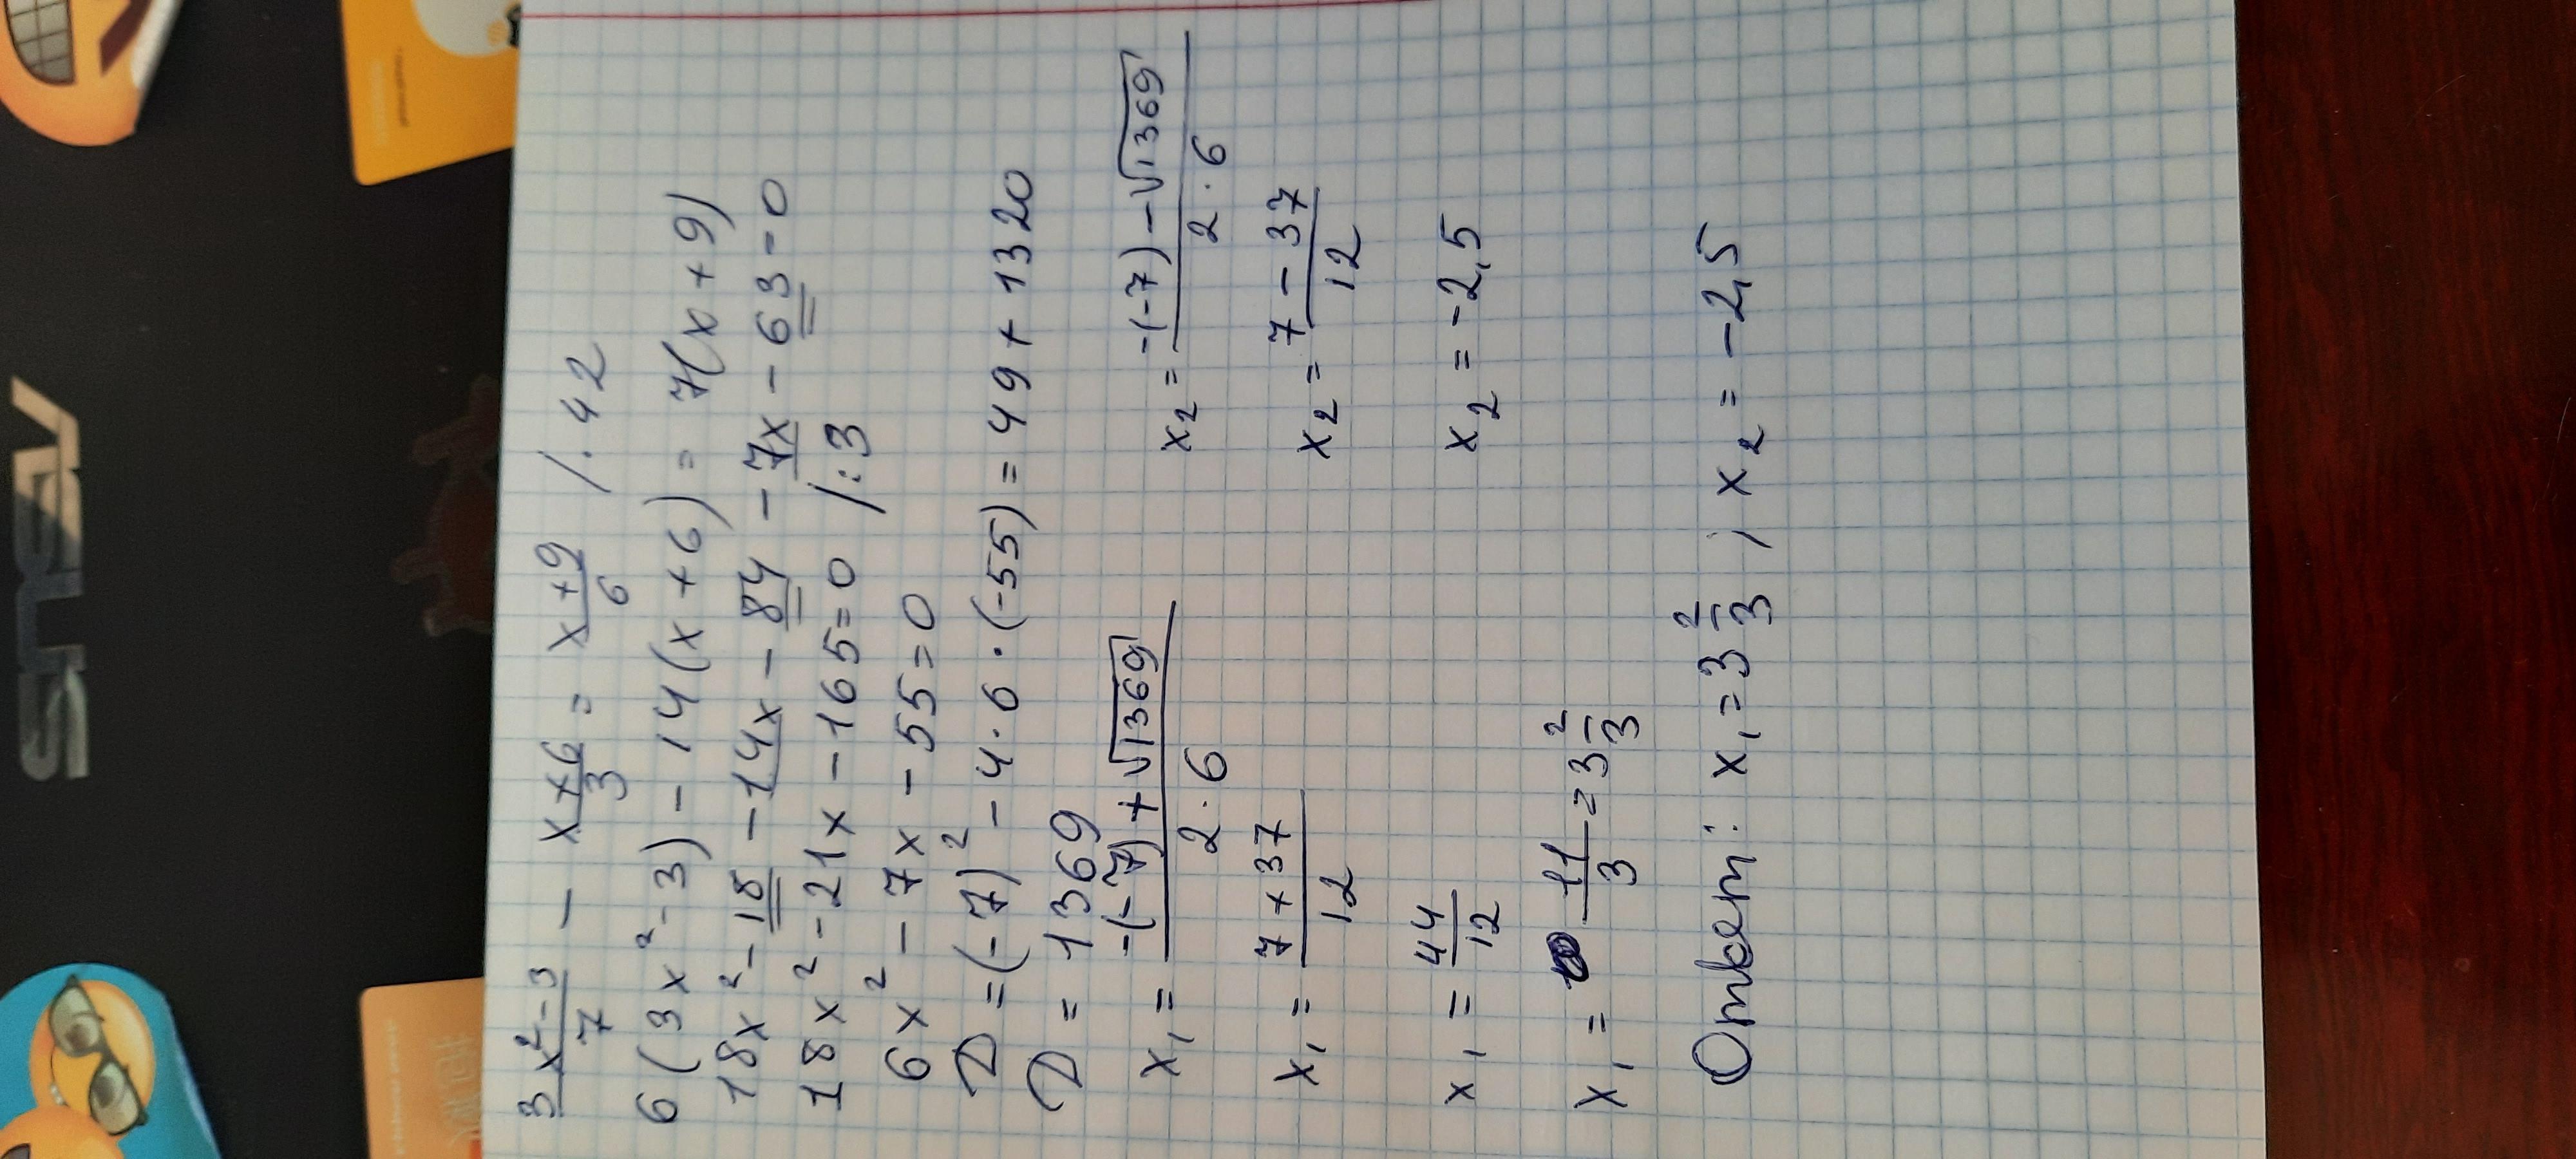 ASUS
3x²-3/7 - x+6/3 = x+9/6 /·42
6(3x²-3)-14(x+6)=7(x+9)
18x²-18-14x-84-7x-63=0
18x²-21x-165=0 /:3
6x²-7x-55=0
D=(-7)²-4·6·(-55)=49+1320
D=1369
x₁=-(-7)+√1369/2·6 x₂=-(-7)-√1369/2·6
x₁=7+37/12 x₂=7-37/12
x₁=44/12 x₂=-2,5
x₁=11/3=3 2/3
Ответ: x₁=3 2/3; x₂=-2,5